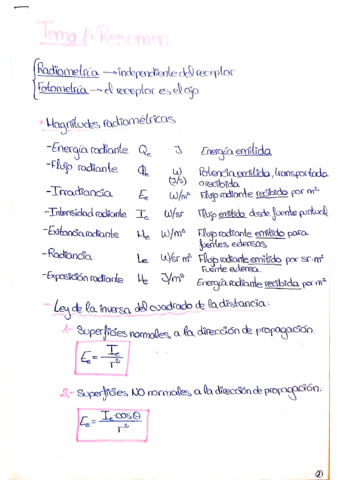 Tema 1: Resumen
Radiometría → independiente del receptor
Fotometría → el receptor es el ojo
• Magnitudes radiométricas
- Energía radiante Qe J Energía emitida
- Flujo radiante Φe W (J/s) Potencia emitida, transportada o recibida
- Irradiancia Ee W/m² Flujo radiante recibido por m²
- Intensidad radiante Ie W/sr Flujo emitido desde fuente puntual
- Exitancia radiante Me W/m² Flujo radiante emitido para fuentes extensas
- Radiancia Le W/sr m² Flujo radiante emitido por sr·m² Fuente extensa
- Exposición radiante He J/m² Energía radiante recibida por m²
- Ley de la inversa del cuadrado de la distancia:
1- Superficies normales a la dirección de propagación
Ee = Ie / r²
2- Superficies NO normales a la dirección de propagación:
Ee = Ie cosθ / r²
①